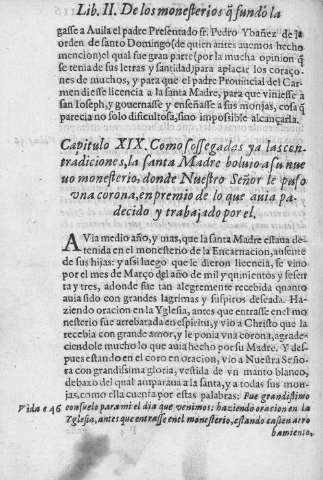 Lib. II. De los monesterios q̃ fundo la
gasse a Auila el padre Presentado fr. Pedro Ybañez de la
orden de santo Domingo (de quien antes auemos hecho
mencion) el qual fue gran parte (por la mucha opinion q̃
se tenia de sus letras y santidad) para aplacar los coraço-
nes de muchos, y para que el padre Prouincial del Car-
men diesse licencia a la santa Madre, para que viniesse a
san Ioseph, y gouernasse y enseñasse a sus monjas, cosa q̃
parecia no solo dificultosa, sino impossible alcançarla.
Capitulo XIX. Como sossegadas ya las con-
tradiciones, la santa Madre boluio a su nue
uo monesterio, donde Nuestro Señor le puso
vna corona, en premio de lo que auia pa-
decido y trabajado por el.
AVia medio año, y mas, que la santa Madre estaua de-
tenida en el monesterio de la Encarnacion, ausente
de sus hijas: y assi luego que le dieron licencia, se vino
por el mes de Março del año de mil y quinientos y sesen-
ta y tres, adonde fue tan alegremente recebida quanto
auia sido con grandes lagrimas y suspiros deseada. Ha-
ziendo oracion en la Yglesia, antes que entrasse en el mo
nesterio fue arrebatada en espiritu, y vio a Christo que la
recebia con grande amor, y le ponia vna corona, agrade-
ciendole mucho lo que auia hecho por su Madre. Y des-
pues estando en el coro en oracion, vio a Nuestra Seño-
ra con grandissima gloria, vestida de vn manto blanco,
debaxo del qual amparaua a la santa, y a todas sus mon-
jas, como ella cuenta por estas palabras: Fue grandissimo
Vida c. 36 consuelo para mi el dia que venimos: haziendo oracion en la
Yglesia, antes que entrasse en el monesterio, estando casi en arro
bamiento,